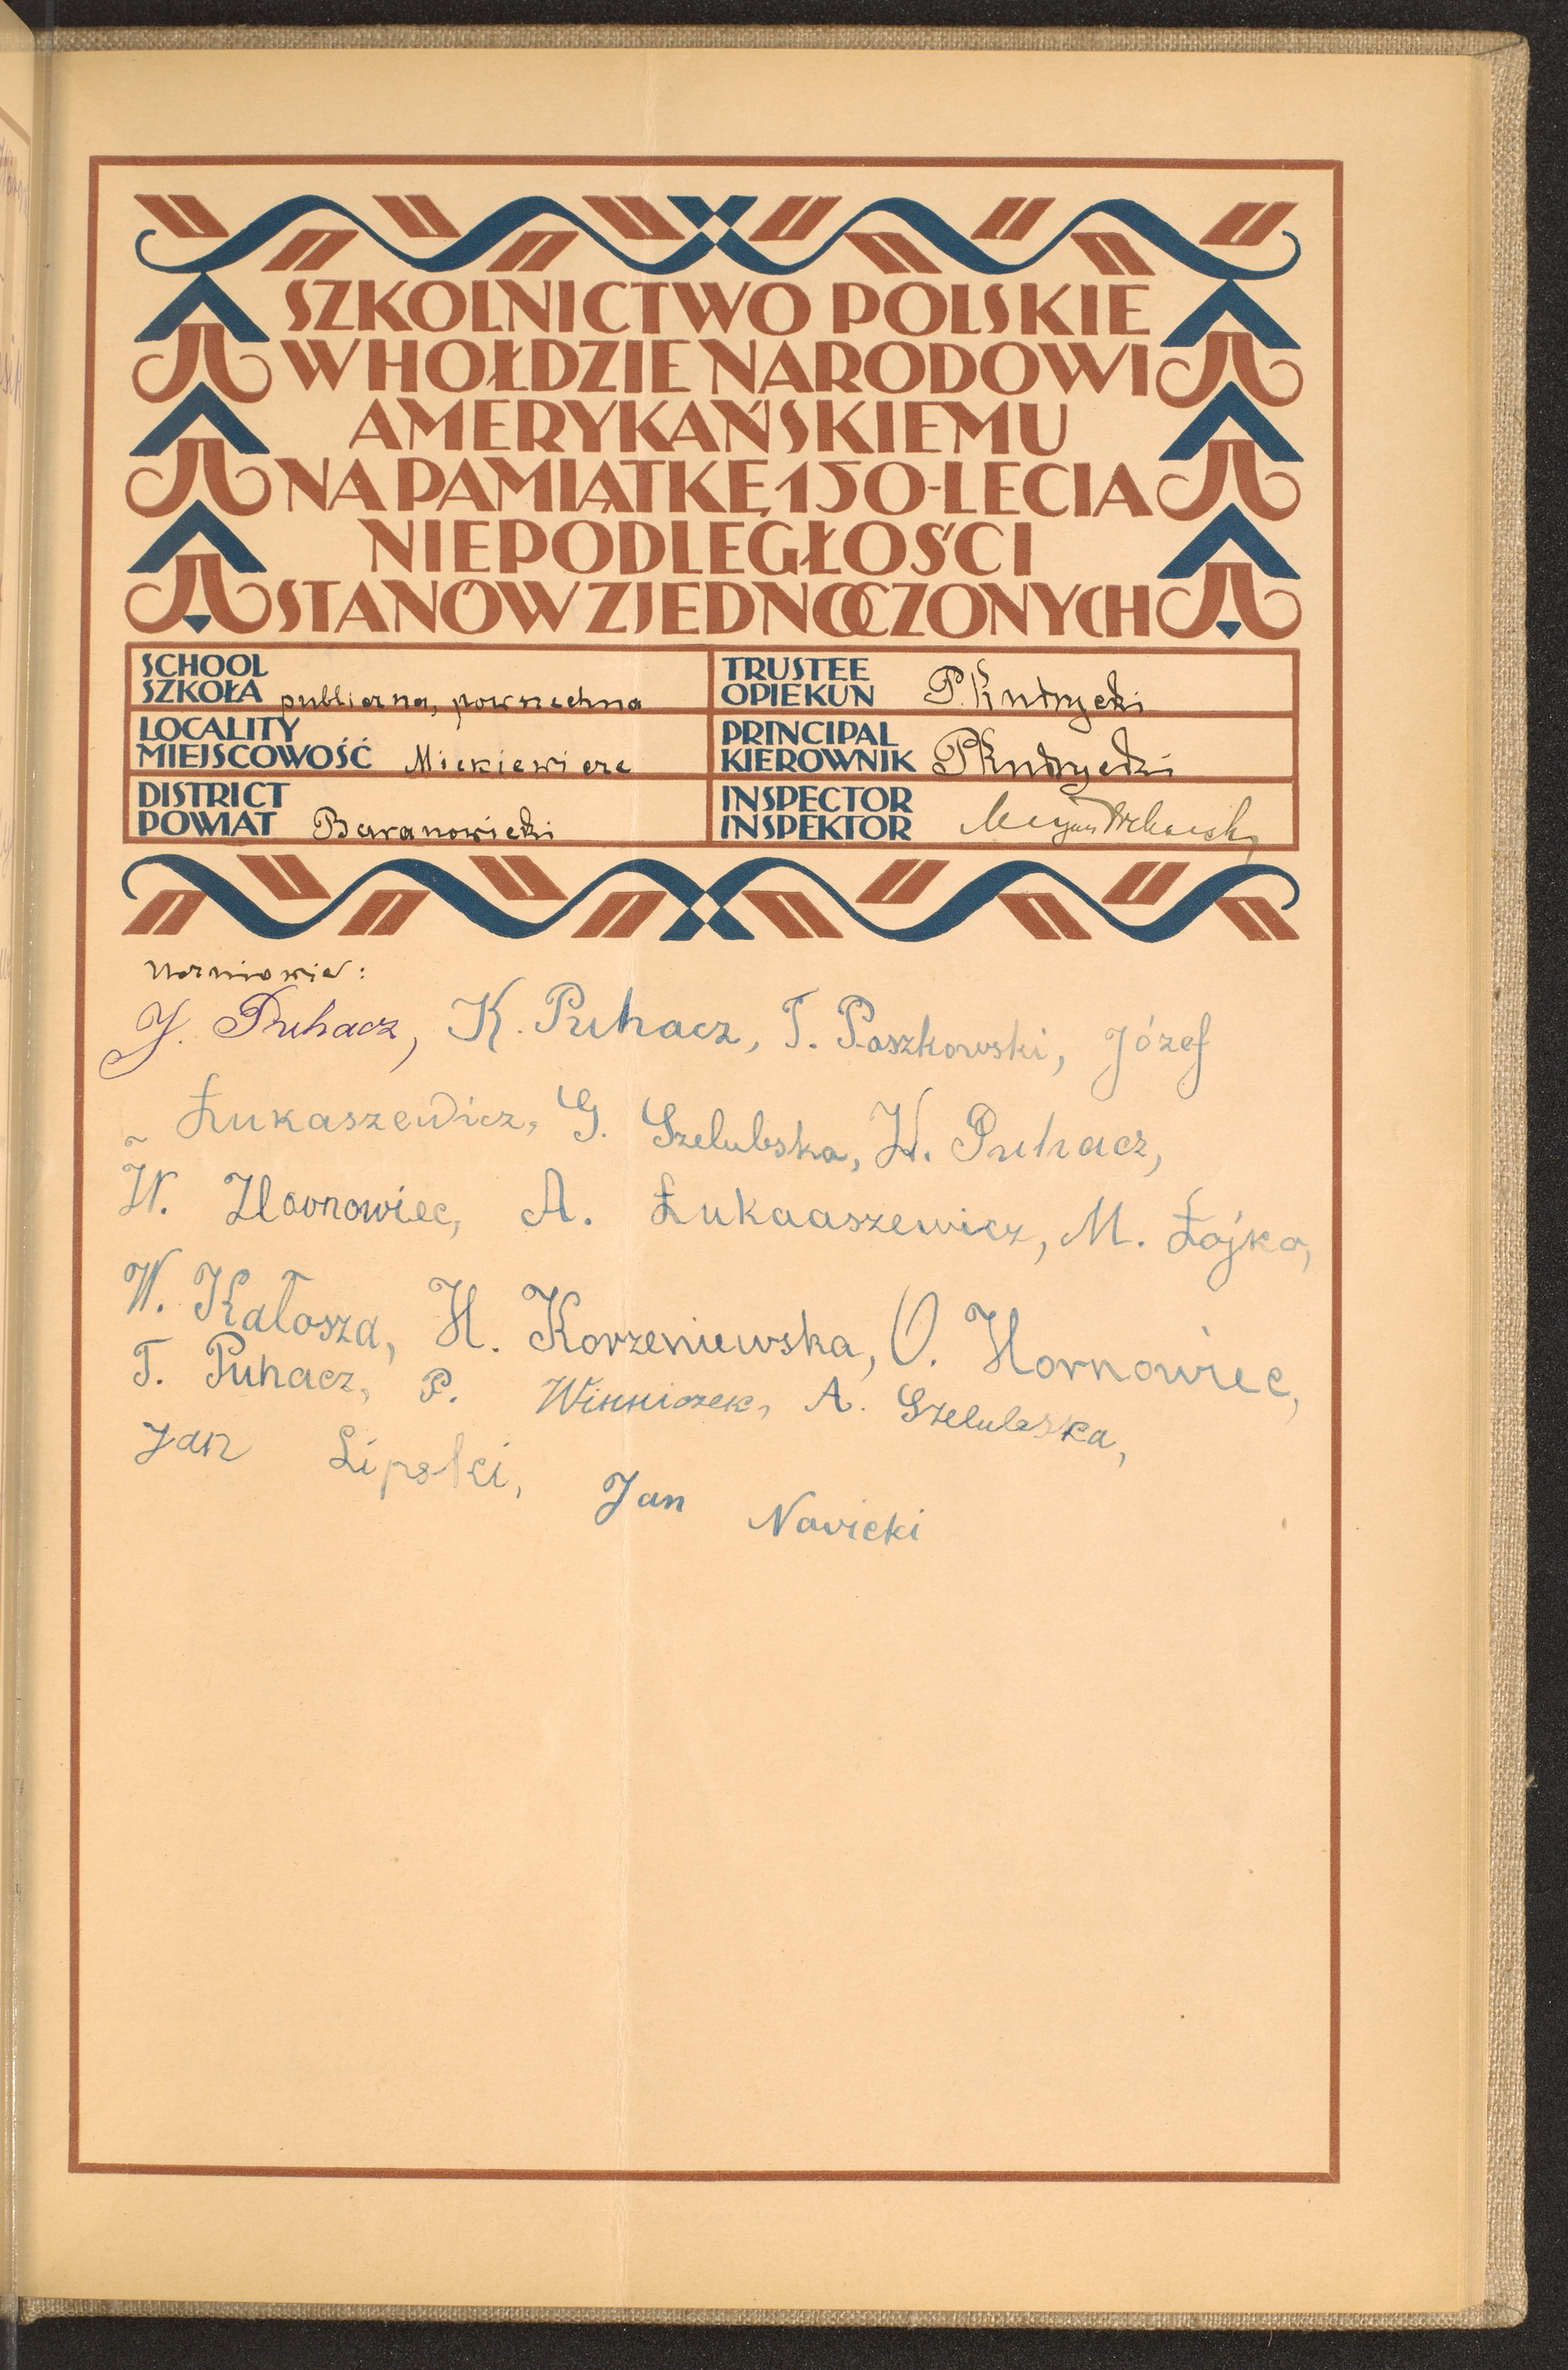 SZKOLNICTWO POLSKIE
W HOŁDZIE NARODOWI
AMERYKAŃSKIEMU
NA PAMIĄTKĘ 150-LECIA
NIEPODLEGŁOŚCI
STANÓW ZJEDNOCZONYCH
SCHOOL
SZKOŁA publiczna, powszechna
LOCALITY
MIEJSCOWOŚĆ Mickiewicze
DISTRICT
POWIAT Baranowicki
TRUSTEE
OPIEKUN P.
PRINCIPAL
KIEROWNIK
INSPECTOR
INSPEKTOR
Uczniowie:
J. Puhacz, K. Puhacz, T. Paszkowski, Józef
Łukaszewicz, G. Szelubska, W. Puhacz,
W. Hornowiec, A. Łukaaszewicz, M. Łojko,
W. Kałosza, H. Korzeniewska, O. Hornowiec,
T. Puhacz, P. Winniczek, A. Szelubska,
Jan Lipski, Jan Nowicki